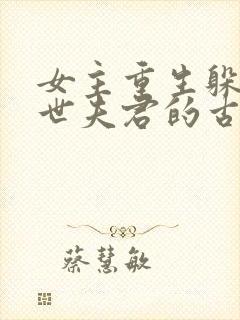 女主重生躲
世夫君的古
蔡慧敏